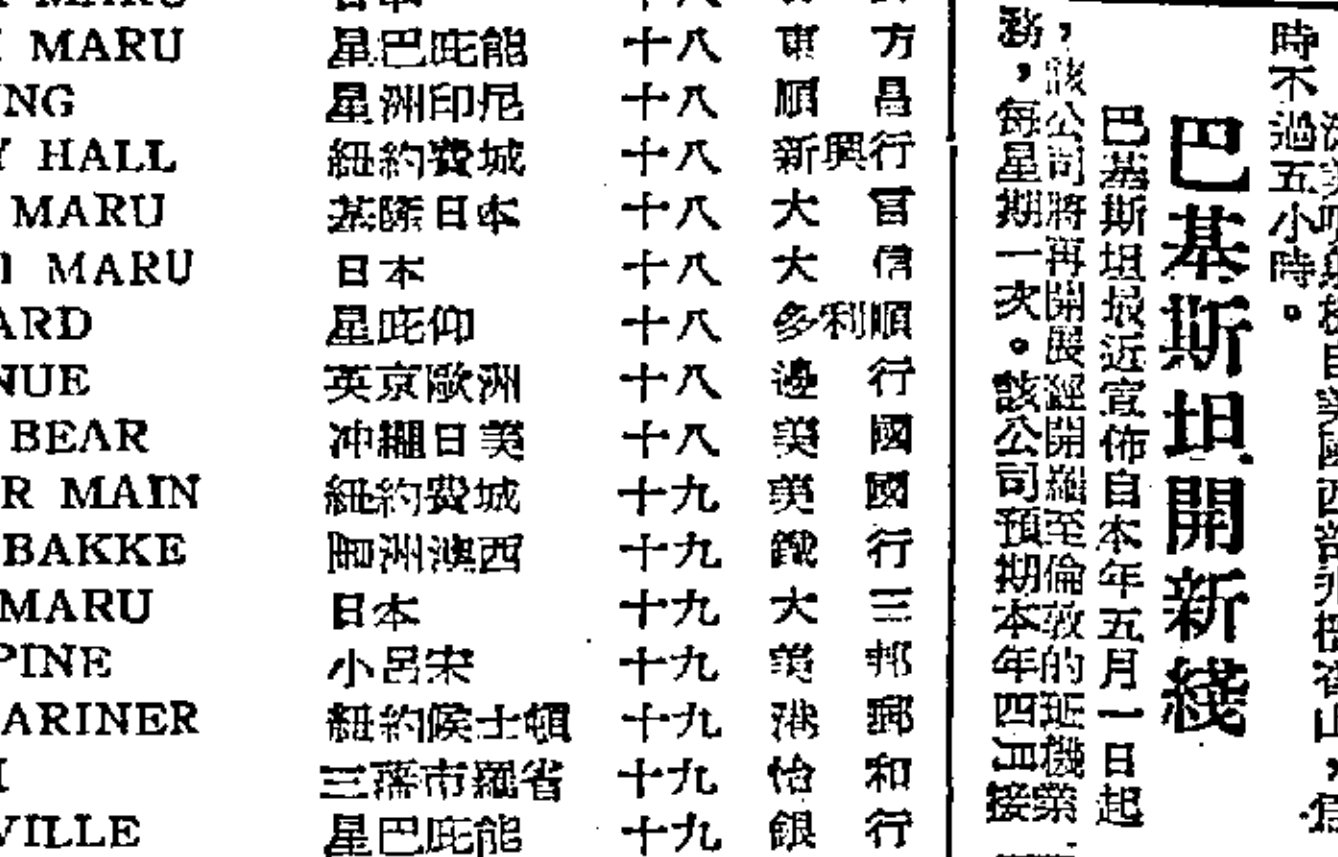 MARU 星巴庇能 十八 東方
NG 星洲印尼 十八 順昌
Y HALL 紐約費城 十八 新興行
MARU 基隆日本 十八 大官
I MARU 日本 十八 大信
ARD 星庇仰 十八 多利順
NUE 英京歐洲 十八 邊行
BEAR 冲繩日美 十八 美國
R MAIN 紐約費城 十九 美國
BAKKE 洲澳西 十九 鐵行
MARU 日本 十九 大三
PINE 小呂宋 十九 美邦
ARINER 紐約候士頓 十九 港郵
三藩市羅省 十九 怡和
VILLE 星巴庇能 十九 銀行
時不過五小時。
巴基斯坦開新綫
巴基斯坦最近宣佈自本年五月一日起
,該公司將再開展經開羅至倫敦的班機業
務,每星期一次。該公司預期本年四月接